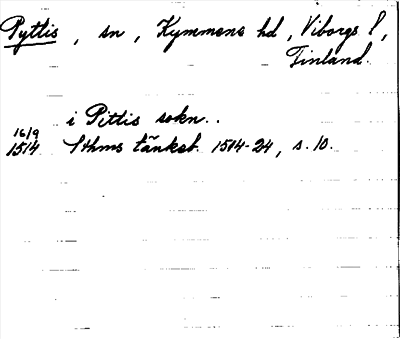 Pyttis, sn, Kymmene hd, Viborgs l,
Finland.
i Pittis sokn..
16/9
1514 Sthms tänkeb. 1514-24, s. 10.